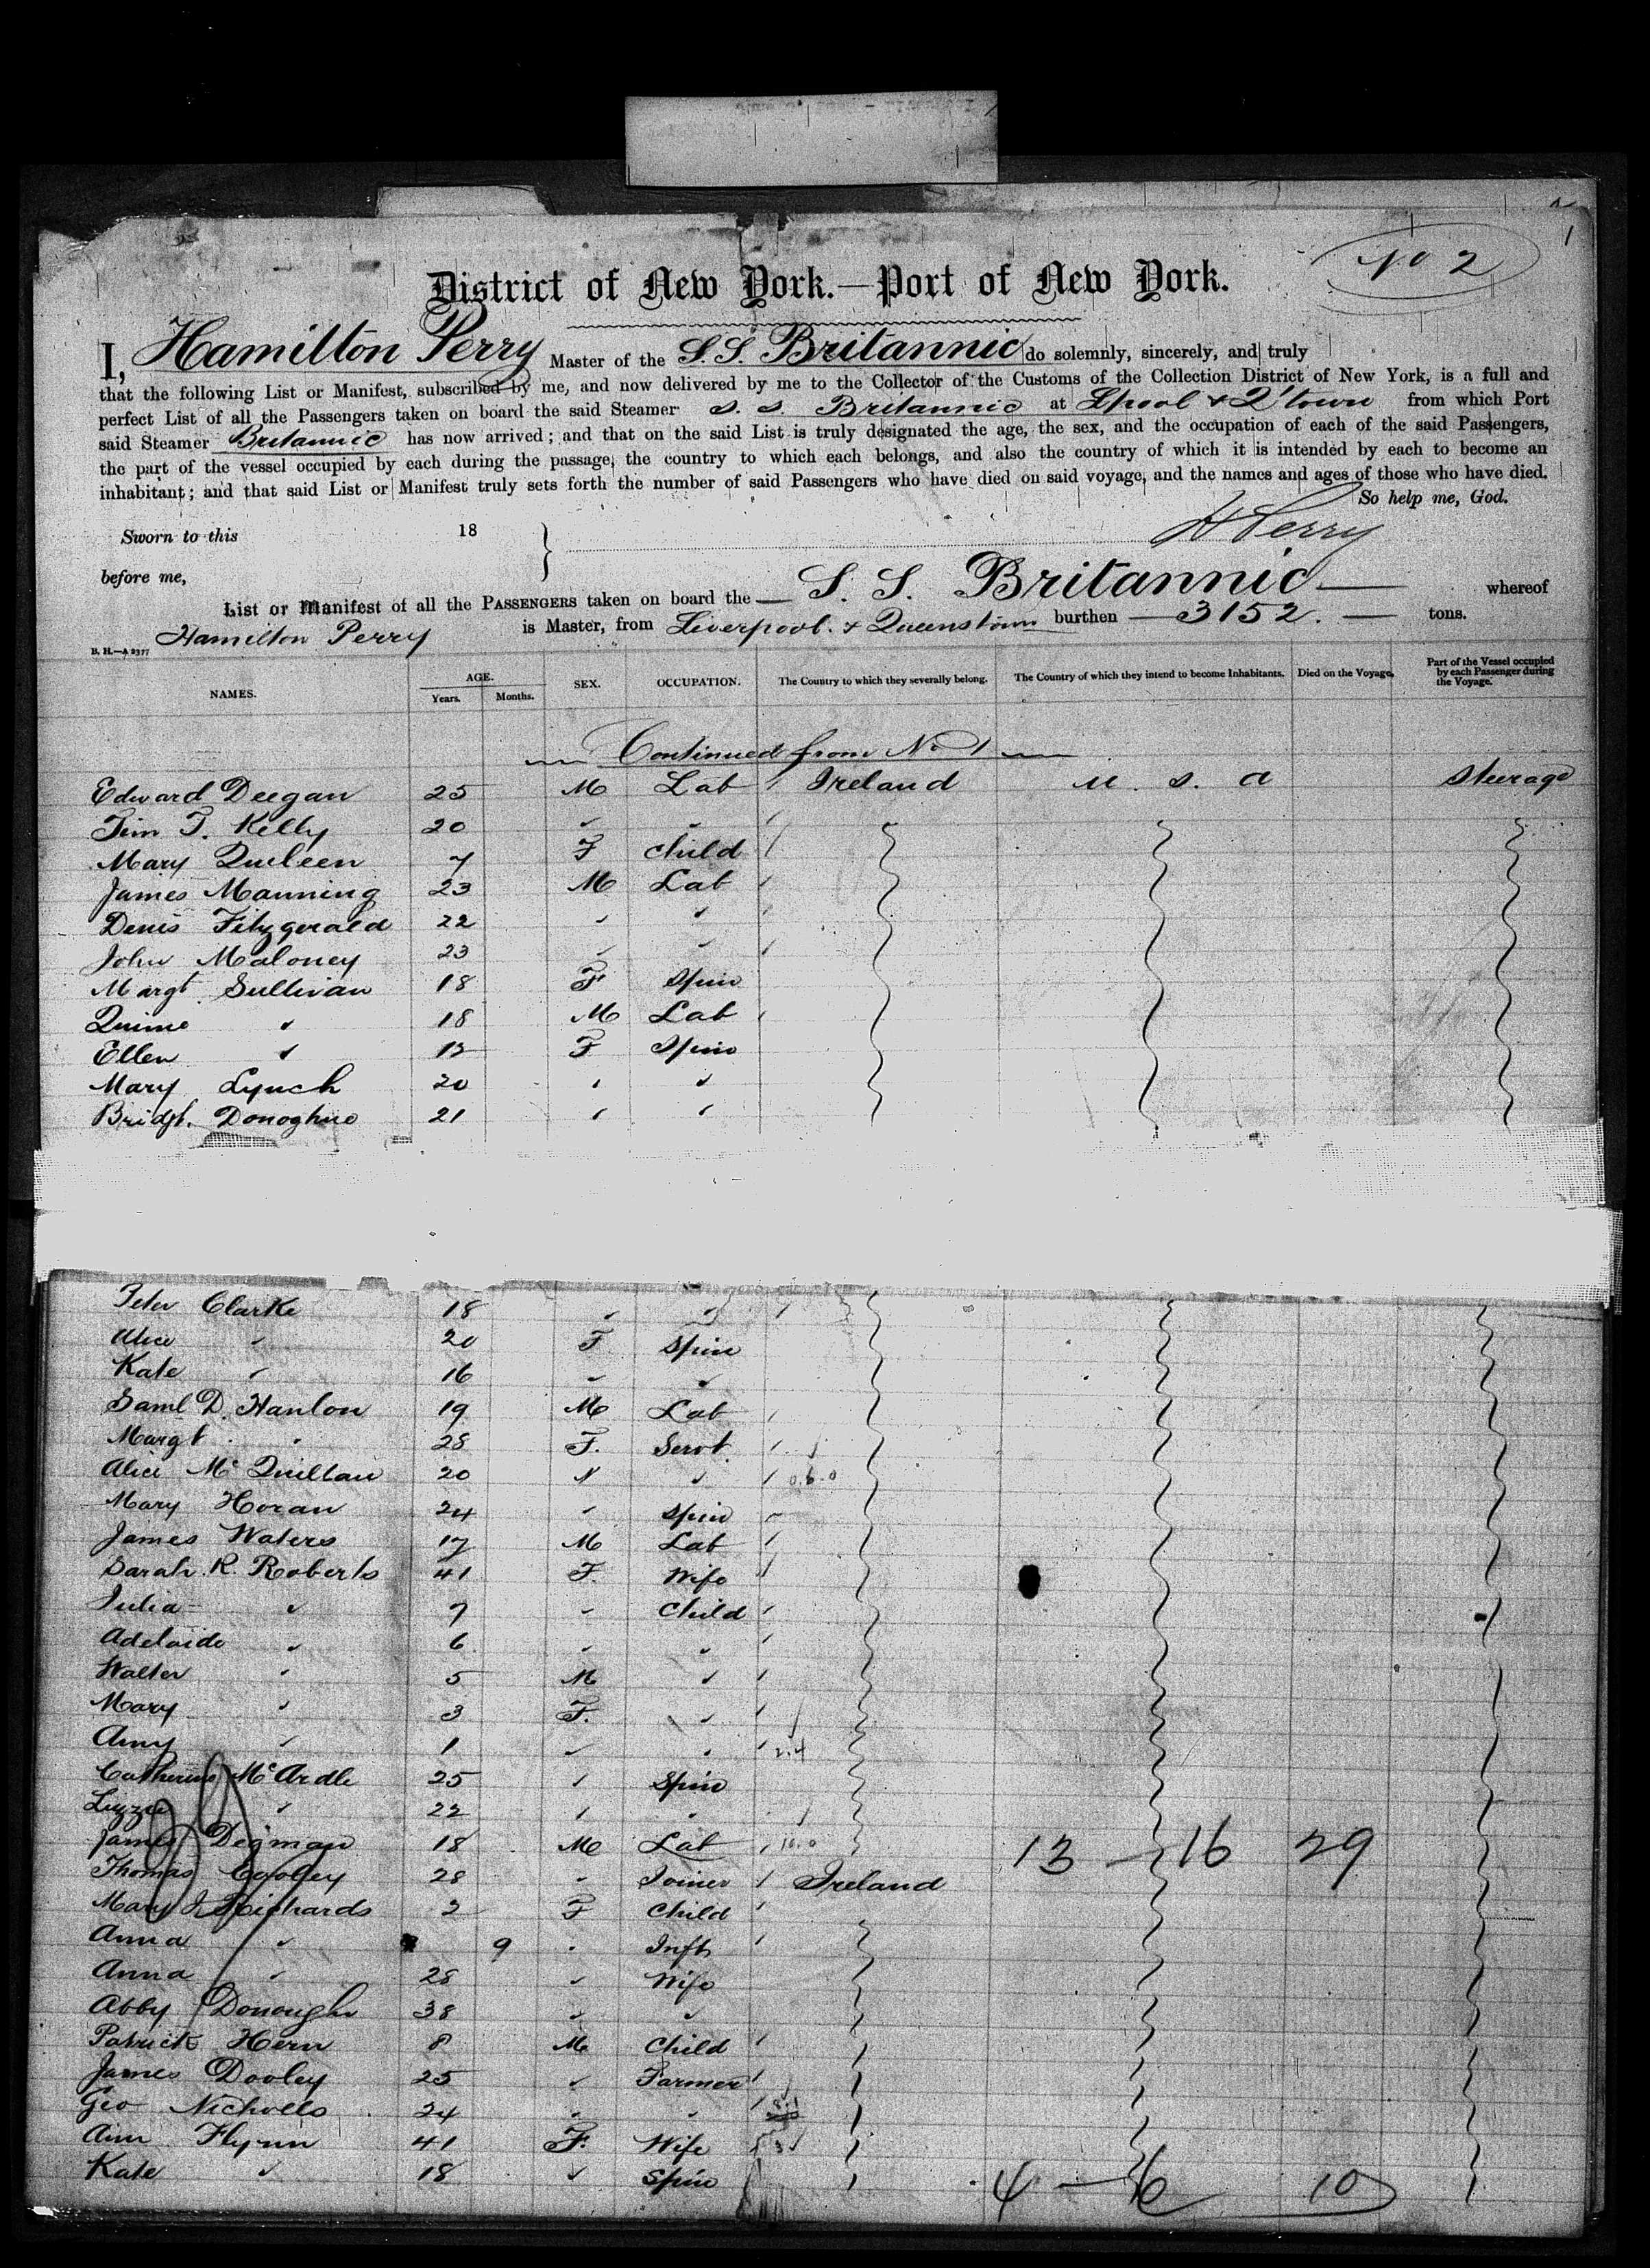 No 2
District of New York.—Port of New York.
I, Hamilton Perry Master of the S.S. Britannic do solemnly, sincerely, and truly
that the following List or Manifest, subscribed by me, and now delivered by me to the Collector of the Customs of the Collection District of New York, is a full and
perfect List of all the Passengers taken on board the said Steamer S. S. Britannic at Lpool & Q'town from which Port
said Steamer Britannic has now arrived; and that on the said List is truly designated the age, the sex, and the occupation of each of the said Passengers,
the part of the vessel occupied by each during the passage, the country to which each belongs, and also the country of which it is intended by each to become an
inhabitant; and that said List or Manifest truly sets forth the number of said Passengers who have died on said voyage, and the names and ages of those who have died.
So help me, God.
Sworn to this 18
H Perry
before me,
List or Manifest of all the PASSENGERS taken on board the — S. S. Britannic — whereof
Hamilton Perry is Master, from Liverpool. & Queenstown burthen — 3152. — tons.
B. H.—A 2377
NAMES. AGE. Years. Months. SEX. OCCUPATION. The Country to which they severally belong. The Country of which they intend to become Inhabitants. Died on the Voyage. Part of the Vessel occupied by each Passenger during the Voyage.
Continued from No 1
Edward Deegan 25 M Lab Ireland U. S. A Steerage
Tim T. Kelly 20
Mary 7 F Child
James Manning 23 M Lab
Denis Fitzgerald 22
John Maloney 23
Margt. Sullivan 18 F Spin
18 M Lab
Ellen F Spin
Mary Lynch 20
Bridgt. Donoghue 21
Peter Clarke 18
Alice 20 F Spin
Kate 16
Saml D. Hanlon 19 M Lab
Margt 28 F. Servt.
Alice Mc Quillan 20 0.6.0
Mary Horan 24 Spin
James Waters 17 M Lab
Sarah R. Roberts 41 F. Wife
Julia 7 Child
Adelaide 6
Walter 5 M
Mary 3 F.
Amy 1 2.4
Catherine McArdle 25 Spin
Lizzie 22
James Degman 18 M Lab 16.0 13 — 16 29
Thomas 28 Joiner Ireland
Mary J. Richards F Child
Anna 9 Inft
Anna 28 Wife
Abby Donough 38
Patrick Hern 8 M Child
James Dooley 25 Farmer
Geo Nicholls 24
Ann Flynn 41 F. Wife
Kate 18 Spin 4 — 6 10